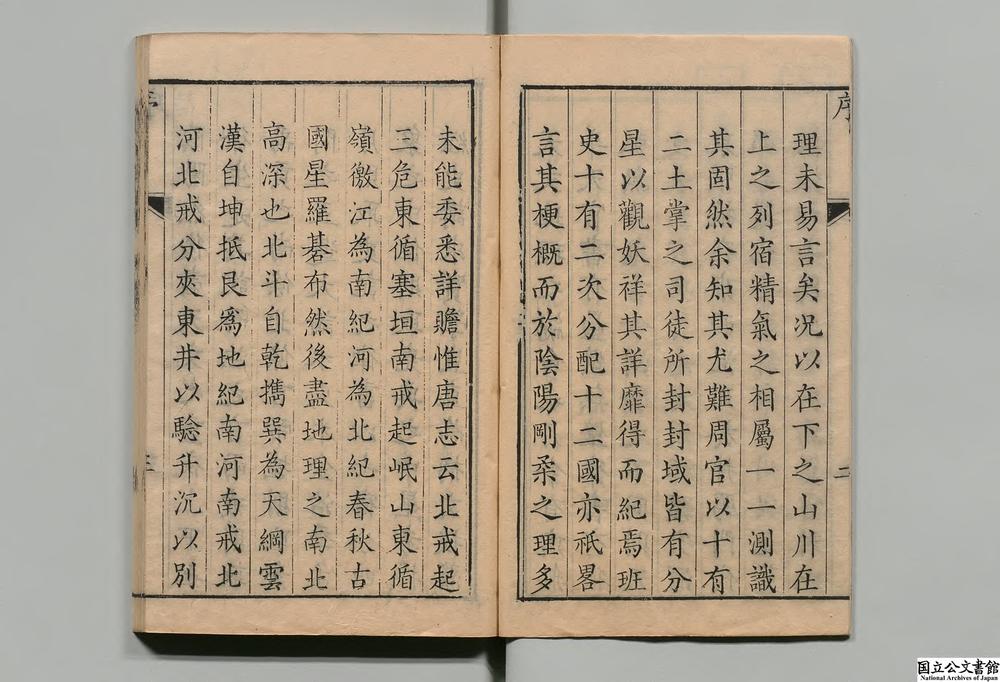 序
理未易言矣况以在下之山川在
上之列宿精氣之相屬一一測識
其固然余知其尤難周官以十有
二土掌之司徒所封封域皆有分
星以觀妖祥其詳靡得而紀焉班
史十有二次分配十二國亦祇畧
言其梗概而於陰陽剛柔之理多
二
未能委悉詳贍惟唐志云北戒起
三危東循塞垣南戒起岷山東循
嶺徼江為南紀河為北紀春秋古
國星羅碁布然後盡地理之南北
高深也北斗自乾擕巽為天綱雲
漢自坤抵艮爲地紀南河南戒北
河北戒分夾東井以驗升沉以別
三
国立公文書館
National Archives of Japan